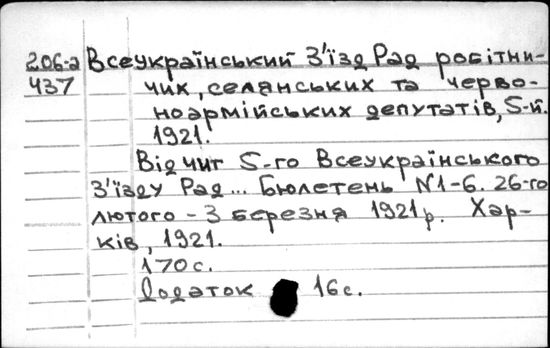 206-а Всеукраїнський З'їзд Рад робітни-
437 чих, селянських та черво-
ноармійських депутатів, 5-й.
1921.
Відчит 5-го Всеукраїнського
З'їзду Рад... Бюлетень №1-6. 26-го
лютого - 3 березня 1921 р. Хар-
ків, 1921.
170 с.
Додаток 16 с.